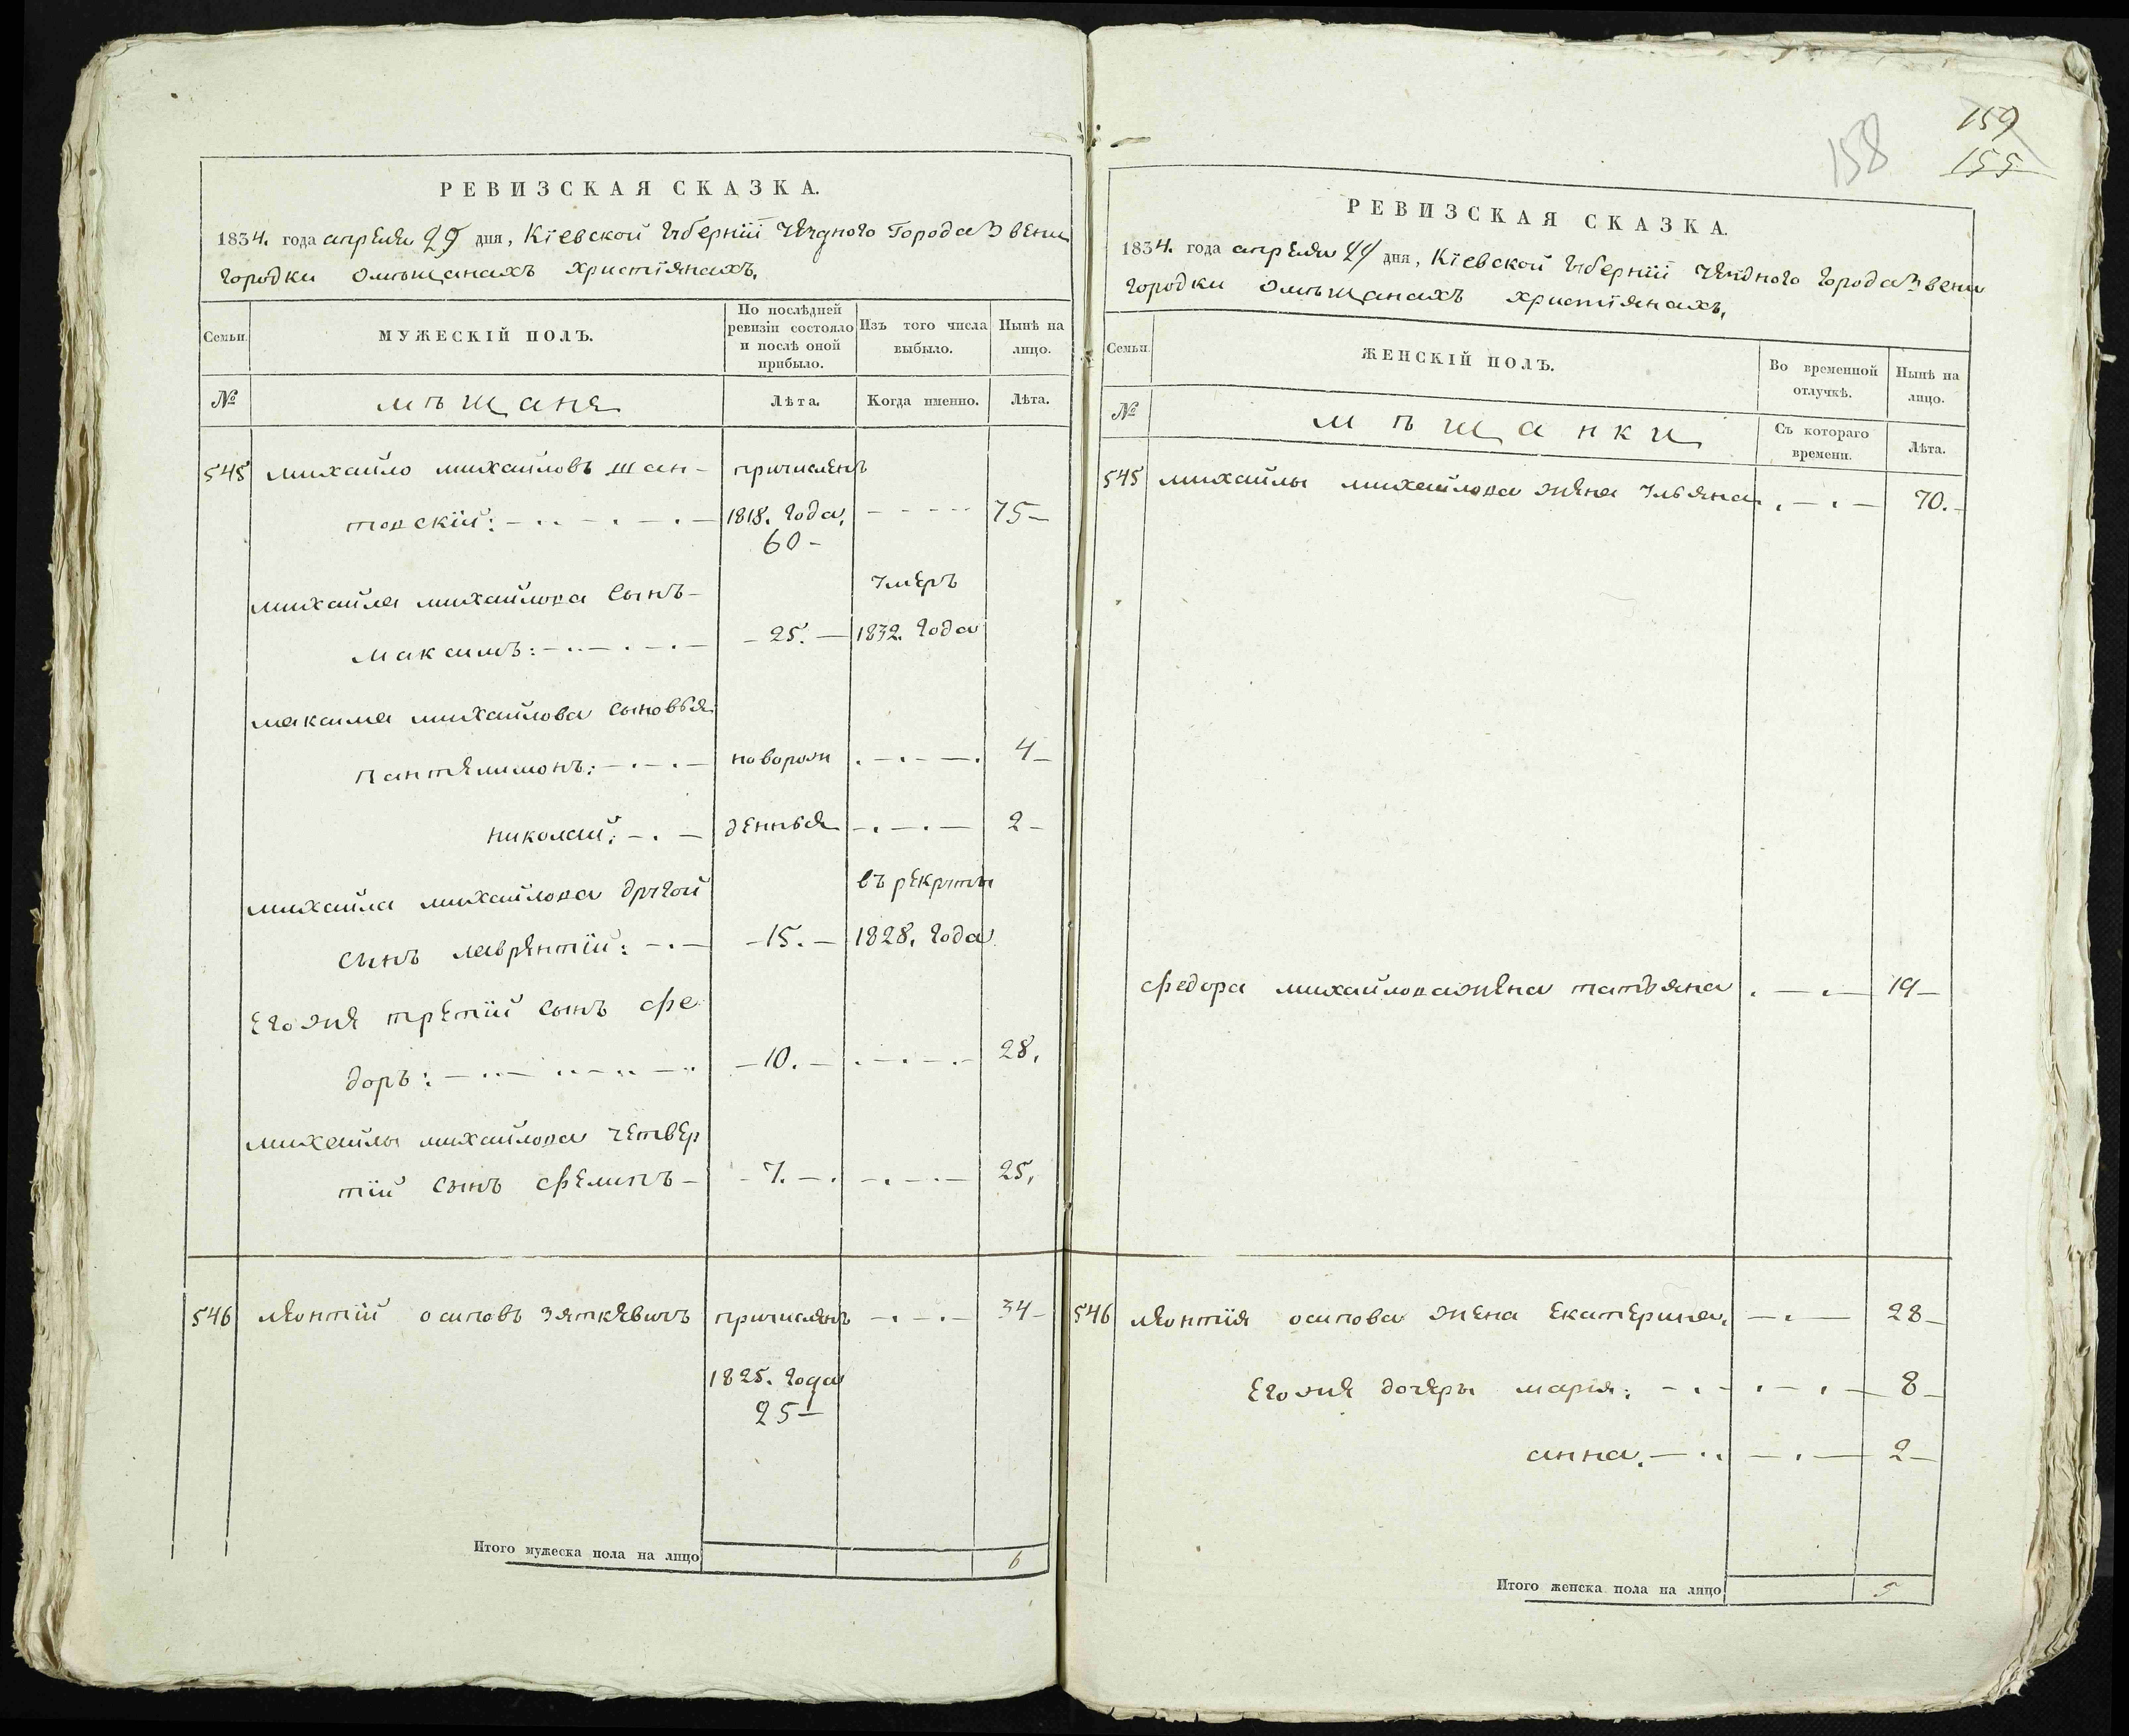 РЕВИЗСКАЯ СКАЗКА.
1834. года апреля 29 дня, Кіевской Губерніи Уезднаго Города Звени
городки Омѣщанахъ христіянахъ.
Семьи. МУЖЕСКІЙ ПОЛЪ. По послѣдней ревизіи состояло и послѣ оной прибыло. Изъ того числа выбыло. Нынѣ на лицо.
№ мѣщане Лѣта. Когда именно. Лѣта.
545 михайло михайловъ шан- причисленъ
товскій: 1818. года, 75
60
михайла михайлова сынъ- умеръ
максимъ: 25. 1832. года
максима михайлова сыновья
пантелимонъ: новорож 4
николай: денныя 2
михайла михайлова другой въ рекруты
сынъ лаврентій: 15. 1828. года
его же третій сынъ фе
доръ: 10. 28.
михайлы михайлова четвер
тій сынъ фелипъ 7. 25.
546 леонтій осиповъ зяткевичъ причисленъ 34
1825. года
25
Итого мужеска пола на лицо 6
158 159
155
РЕВИЗСКАЯ СКАЗКА.
1834. года апреля 29 дня, Кіевской Губерніи Уезднаго города Звени
городки Омѣщанахъ христіянахъ,
Семьи. ЖЕНСКІЙ ПОЛЪ. Во временной отлучкѣ. Нынѣ на лицо.
№ мѣщанки Съ котораго времени. Лѣта.
545 михайлы михайлова жена ульяна 70.
федора михайлова жена татьяна 19
546 леонтія осипова жена екатерина, 28
его же дочеры марія: 8
анна. 2
Итого женска пола на лицо 5